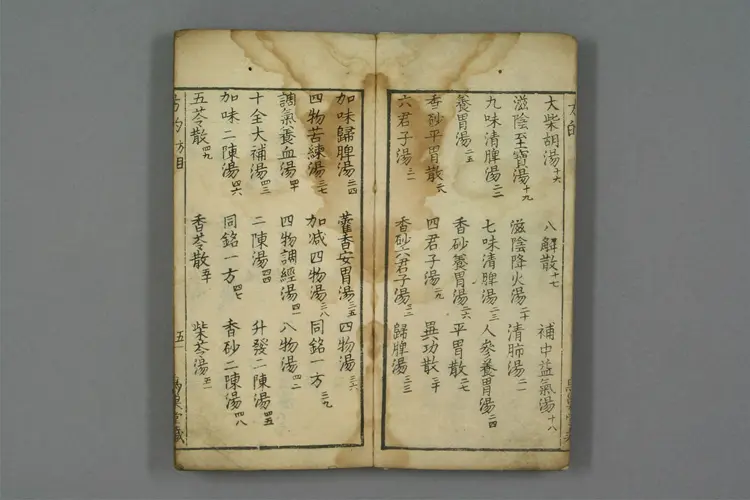 大柴胡湯十六 八解散十七 補中益氣湯十八
滋陰至寶湯十九 滋陰降火湯二十 清肺湯二一
九味清脾湯二二 七味清脾湯二三 人參養胃湯二四
養胃湯二五 香砂養胃湯二六 平胃散二七
香砂平胃散二八 四君子湯二九 異功散三十
六君子湯三一 香砂六君子湯三二 歸脾湯三三
加味歸脾湯三四 藿香安胃湯三五 四物湯三六
四物苦練湯三七 加减四物湯三八 同銘一方三九
調氣養血湯四十 四物調經湯四一 八物湯四二
十全大補湯四三 二陳湯四四 升發二陳湯四五
加味二陳湯四六 同銘一方四七 香砂二陳湯四八
五苓散四九 香苓散五十 柴苓湯五一
方的 方目 五